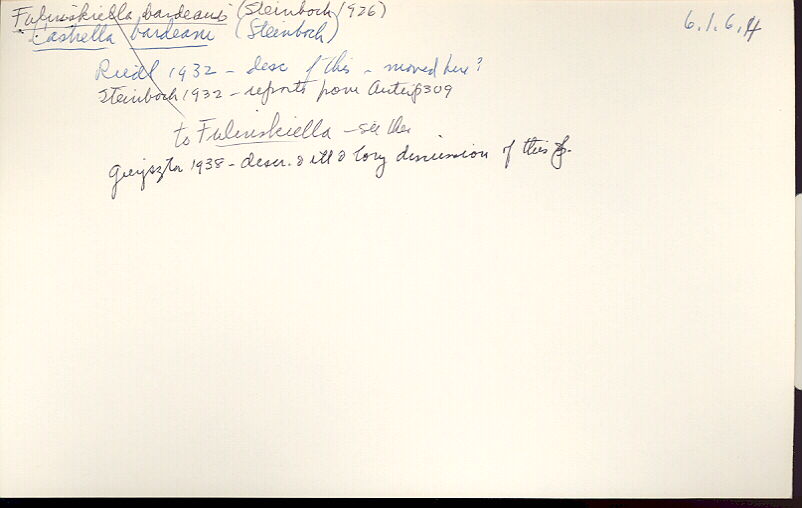 Fulinskiella bardeaui (Steinboch 1926)
6.1.6.4
Castrella bardeaui (Steinboch)
Riedl 1932 - desc of this - moved here?
Steinboch 1932 - reports from p309
to Fulinskiella - see there
Gieysztor 1938 - descr. & ill & long discussion of this